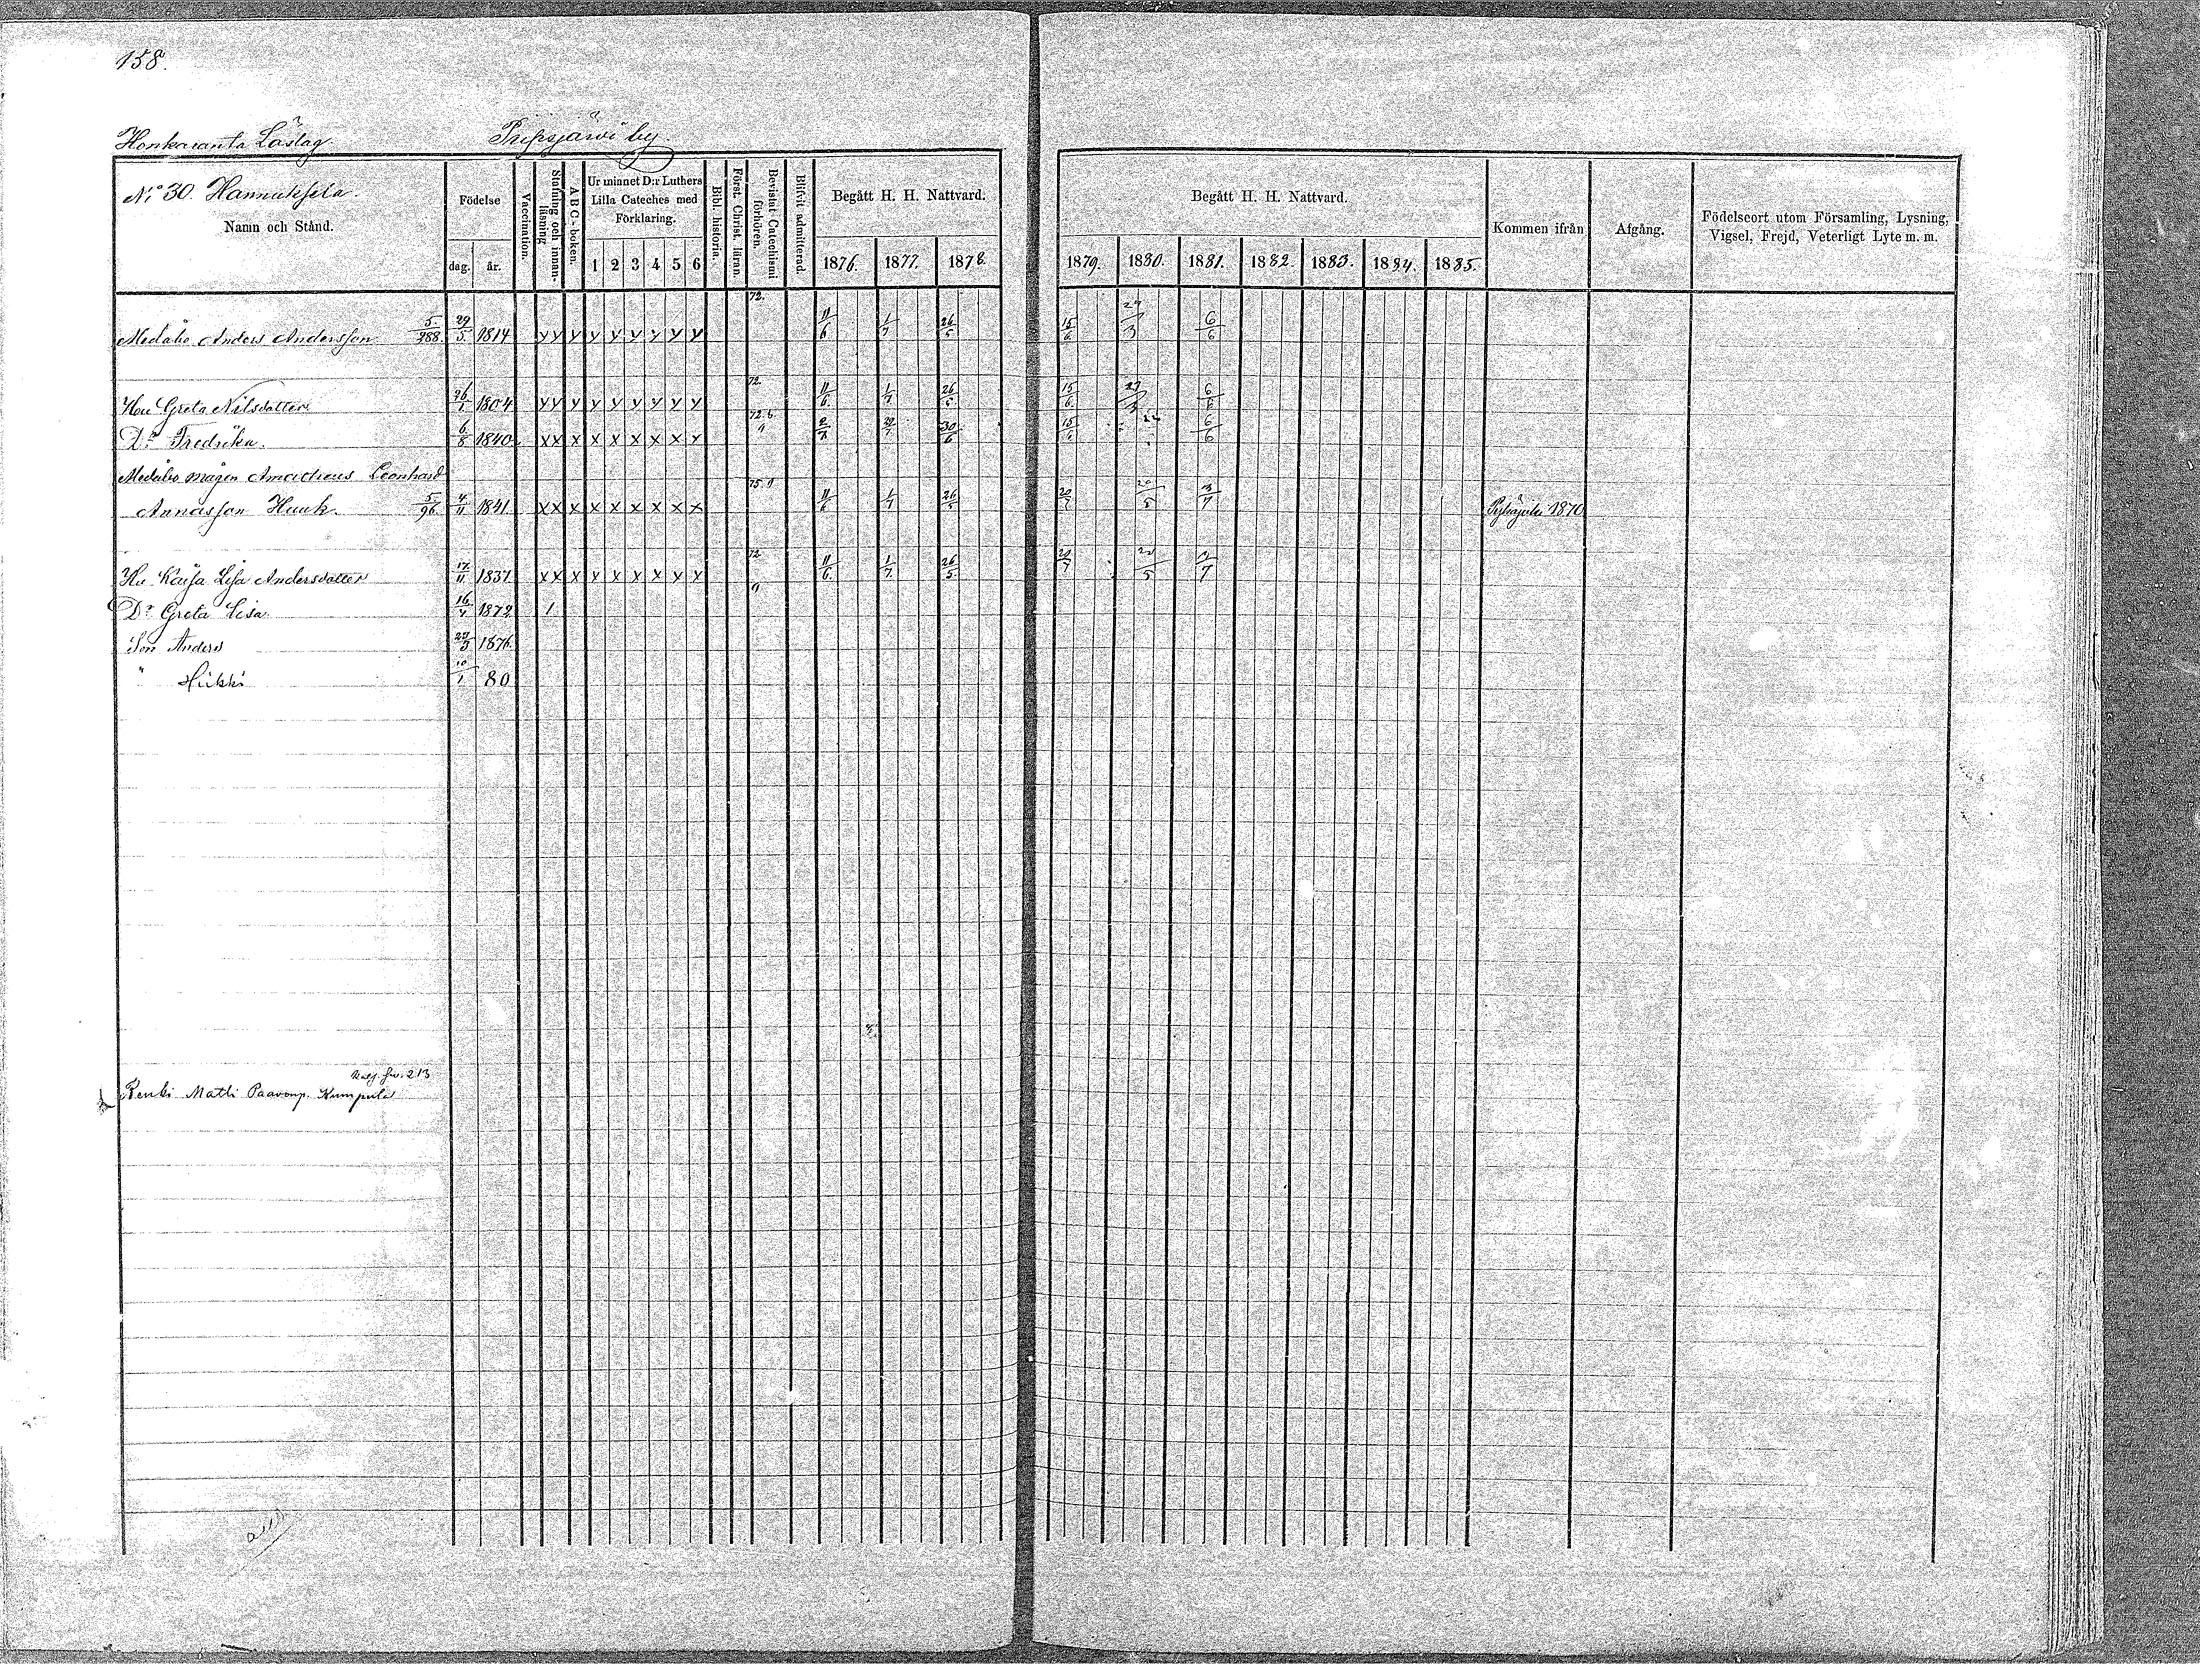 158.
Honkaranta Läslag
Pipsjärvi by
No 30. Hannuksela.
Namn och Stånd.
Födelse
dag. år.
Vaccination.
Stafning och innan-läsning
A B C-boken.
Ur minnet D:r Luthers
Lilla Cateches med
Förklaring.
1 2 3 4 5 6
Bibl. historia.
Först. Christ. läran.
Bevistat Catechismi förhören.
Blifvit admitterad.
Begått H. H. Nattvard.
1876. 1877. 1878.
Begått H. H. Nattvard.
1879. 1880. 1881. 1882. 1883. 1884. 1885.
Kommen ifrån
Afgång.
Födelseort utom Församling, Lysning,
Vigsel, Frejd, Veterligt Lyte m. m.
Medåbo Anders Andersson 5/288 29/5 1814 y y y y y y y y y 72. 11/6 1/7 26/5 15/6 29/3 6/6
Hu Greta Nilsdotter 26/1 1804 y y y y y y y y y 72. 11/6 1/7 26/5 15/6 29/3 6/6
Dr Fredrika. 6/8 1840. x x x x x x x x x 30/6 15/6 6/6
Medåbo mågen Amadeus Leonhard
Annasson Hauk. 5/96 4/11 1841 x x x x x x x x x 75. 11/6 1/7 26/5 20/7 20/5 3/7 1870
Hu Kaisa Lisa Andersdotter 17/11 1837 x x x x x x x x x 72 11/6 1/7 26/5 20/7 20/5 3/7
Dr Greta Lisa 16/4 1872 1
Son Anders 29/3 1876.
" Heikki 10/1 80
213
Renki Matti Paavonp. Kumpula